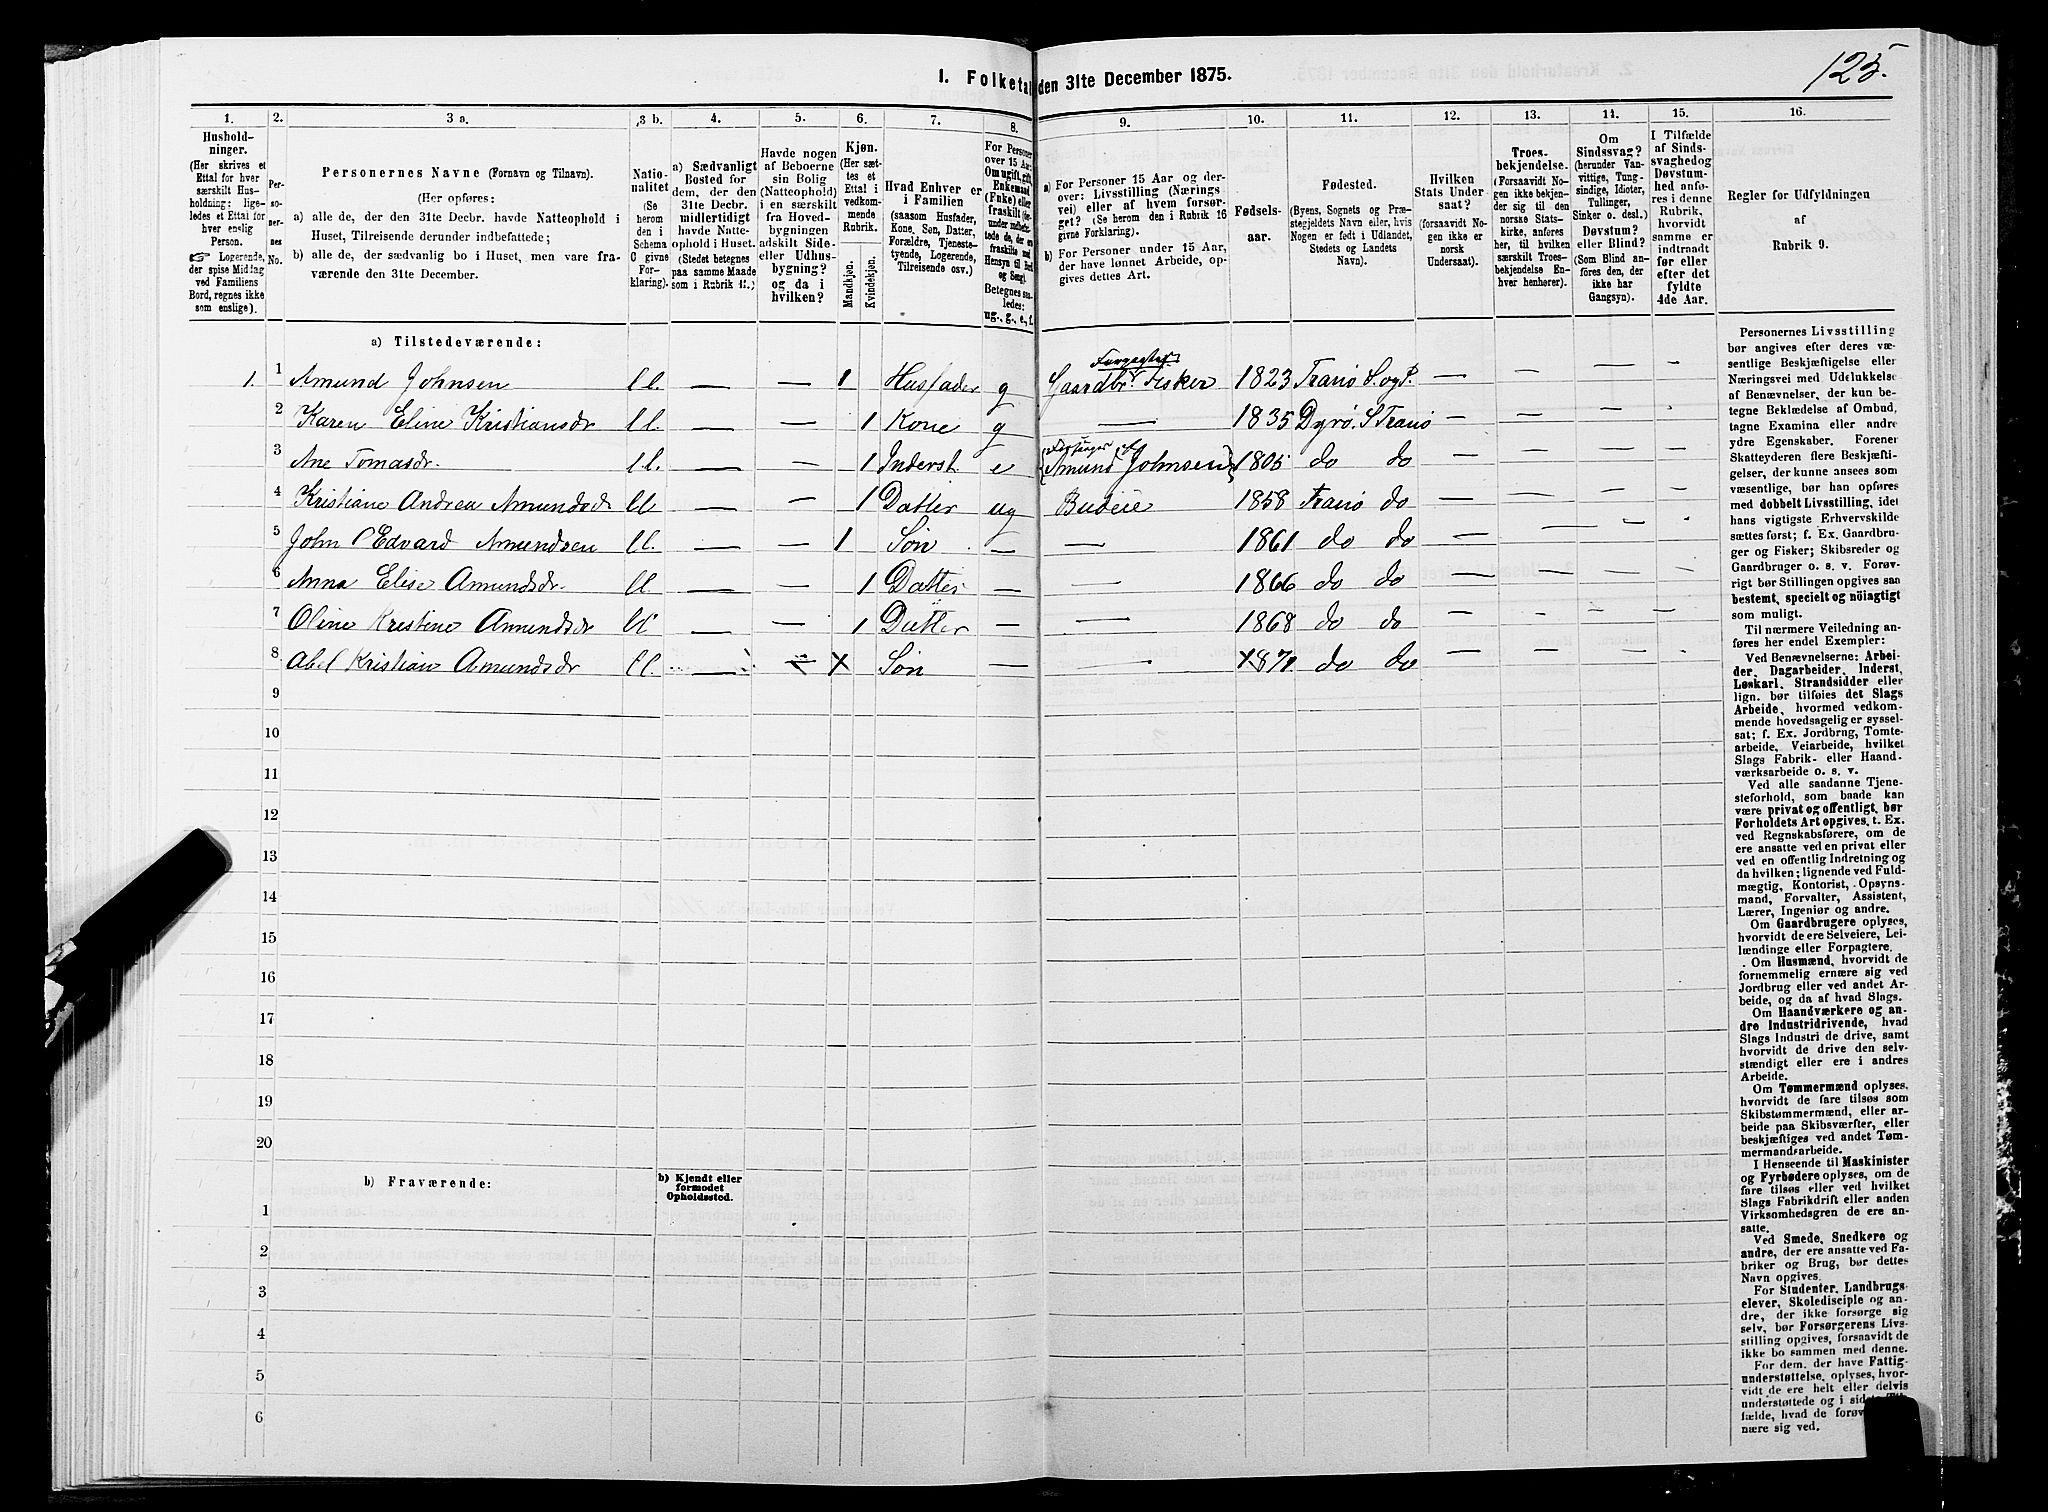 125.
1. Folketal den 31te December 1875.
1. 2. 3 a. 3 b. 4. 5. 6. 7. 8. 9. 10. 11. 12. 13. 14. 15. 16.
Hushold-
ninger.
(Her skrives et
Ettal for hver
særskilt Hus-
holdning; lige-
ledes et Ettal for
hver enslig
Person.
☞ Logerende,
der spise Middag
ved Familiens
Bord, regnes ikke
som enslige).
Per-
so-
ner-
nes
No.
Personernes Navne (Fornavn og Tilnavn).
(Her opføres:
a) alle de, der den 31te Decbr. havde Natteophold i
Huset, Tilreisende derunder indbefattede;
b) alle de, der sædvanlig bo i Huset, men vare fra-
værende den 31te December.
Natio-
nalitet
(Se
herom
den i
Schema
C givne
For-
klaring).
a) Sædvanligt
Bosted for
dem, der den
31te Decbr.
midlertidigt
havde Natte-
ophold i Huset.
(Stedet betegnes
paa samme Maade
som i Rubrik 11.)
Havde nogen
af Beboerne
sin Bolig
(Natteophold)
i en særskilt
fra Hoved-
bygningen
adskilt Side-
eller Udhus-
bygning?
og da i
hvilken?
Kjøn.
(Her sæt-
tes et
Ettal i
vedkom-
mende
Rubrik.
Mandkjøn.
Kvindekjøn.
Hvad Enhver er
i Familien
(saasom Husfader,
Kone, Søn, Datter,
Forældre, Tjeneste-
tyende, Logerende,
Tilreisende osv.)
For Personer
over 15 Aar:
Om ugift, gift,
Enkemand
(Enke) eller
fraskilt
Betegnes saa-
ledes:
ug., g., e., f.
a) For Personer 15 Aar og der-
over: Livsstilling (Nærings-
vei) eller af hvem forsør-
get? (Se herom den i Rubrik 16
givne Forklaring).
b) For Personer under 15 Aar,
der have lønnet Arbeide, op-
gives dettes Art.
Fødsels-
aar.
Fødested.
(Byens, Sognets og Præ-
stegjeldets Navn eller, hvis
Nogen er født i Udlandet,
Stedets og Landets
Navn).
Hvilken
Stats Under-
saat?
(forsaavidt No-
gen ikke er
norsk
Undersaat).
Troes-
bekjendelse.
(Forsaavidt No-
gen ikke bekjen-
der sig til den
norske Stats-
kirke, anføres
her, til hvilken
særskilt Troes-
bekjendelse En-
hver henhører).
Om
Sindssvag?
(herunder Van-
vittige, Tung-
sindige, Idioter,
Tullinger,
Sinker o. desl.)
Døvstum?
eller Blind?
(Som Blind an-
føres den, der
ikke har
Gangsyn).
I Tilfælde
af Sinds-
svaghedog
Døvstum-
hed anfø-
res i denne
Rubrik,
hvorvidt
samme er
indtraadt
før eller
efter det
fyldte
4de Aar.
Regler for Udfyldningen
af
Rubrik 9.
a) Tilstedeværende:
1. 1 Amund Johnsen — — 1 Husfader g Forpagter Gaardbr. Fisker 1823 Tranø S. og P. — — — —
2 Karen Eline Kristiansdr — — 1 Kone g — 1835 Dyrø. S Tranø — — — —
3 Ane Tomasdr. — — 1 Inderst e Amund Johnsen 1805 do do — — — —
4 Kristiane Andrea Amundsdr — — 1 Datter ug Budeie 1858 Tranø do — — — —
5 John Edvard Amundsen — — 1 Søn — — 1861 do do — — — —
6 Anna Elise Amundsdr. — — 1 Datter — — 1866 do do — — — —
7 Oline Kristine Amundsdr — — 1 Datter — — 1868 do do — — — —
8 Abel Kristian Amundsdr — Søn — — 1871 do do — — — —
9
10
11
12
13
14
15
16
17
18
19
20
b) Fraværende: b) Kjendt eller
formodet
Opholdsstod.
1
2
3
4
5
6
Personernes Livsstilling
bør angives efter deres væ-
sentlige Beskjæftigelse eller
Næringsvei med Udelukkelse
af Benævnelser, der kun be-
tegne Beklædelse af Ombud,
tagne Examina eller andre
ydre Egenskaber. Forener
Skatteyderen flere Beskjæfti-
gelser, der kunne ansees som
væsentlige, bør han opføres
med dobbelt Livsstilling, idet
hans vigtigste Erhvervskilde
sættes først; f. Ex. Gaardbru-
ger og Fisker; Skibsreder og
Gaardbruger o. s. v. Forøv-
rigt bør Stillingen opgives saa
bestemt, specielt og nöiagtigt
som muligt.
Til nærmere Veiledning an-
føres her endel Exempler:
Ved Benævnelserne: Arbei-
der, Dagarbeider, Inderst,
Løskarl, Strandsidder eller
lign. bør tilføies det Slags
Arbeide, hvormed vedkom-
mende hovedsagelig er syssel-
sat; f. Ex. Jordbrug, Tomte-
arbeide, Veiarbeide, hvilket
Slags Fabrik- eller Haand-
værksarbeide o. s. v.
Ved alle saadanne Tjene-
steforhold, som baade kan
være privat og offentligt, bør
Forholdets Art opgives, t. Ex.
ved Regnskabsførere, om de
ere ansatte ved en privat eller
ved en offentlig Indretning og
da hvilken; lignende ved Fuld-
mægtig, Kontorist, Opsyns-
mand, Forvalter, Assistent,
Lærer, Ingeniør og andre.
Om Gaardbrugere oplyses,
hvorvidt de ere Selveiere, Lei-
lændinge eller Forpagtere.
Om Husmænd, hvorvidt de
fornemmelig ernære sig ved
Jordbrug eller ved andet Ar-
beide, og da af hvad Slags.
Om Haandværkere og an-
dre Industridrivende, hvad
Slags Industri de drive, samt
hvorvidt de drive den selv-
stændigt eller ere i andres
Arbeide.
Om Tømmermænd oplyses,
hvorvidt de fare tilsøs som
Skibstømmermænd, eller ar-
beide paa Skibsværfter, eller
beskjæftiges ved andet Tøm-
mermandsarbeide.
I Henseende til Maskinister
og Fyrbødere oplyses, om de
fare tilsøs eller ved hvilket
Slags Fabrikdrift eller anden
Virksomhedsgren de ere an-
satte.
Ved Smede, Snedkere og
andre, der ere ansatte ved Fa-
briker og Brug, bør dettes
Navn opgives.
For Studenter, Landbrugs-
elever, Skoledisciple og an-
dre, der ikke forsørge sig
selv, bør Forsørgerens Livs-
stilling opgives, forsaavidt de
ikke bo sammen med denne.
For dem, der have Fattig-
understøttelse, oplyses, hvor-
vidt de ere helt eller delvis
understøttede og i sidste Til-
fælde, hvad de forøv
nære sig ved.